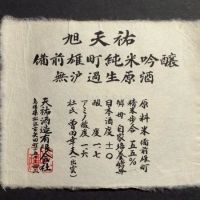 旭天祐
備前雄町純米吟醸
無沪過生原酒
原料米備前雄町
精米歩合 五五%
酵母 自家培養酵母
日本酒度 ±〇
酸度 一・七
アミノ酸度 一・六
杜氏
天祐酒造有限会社